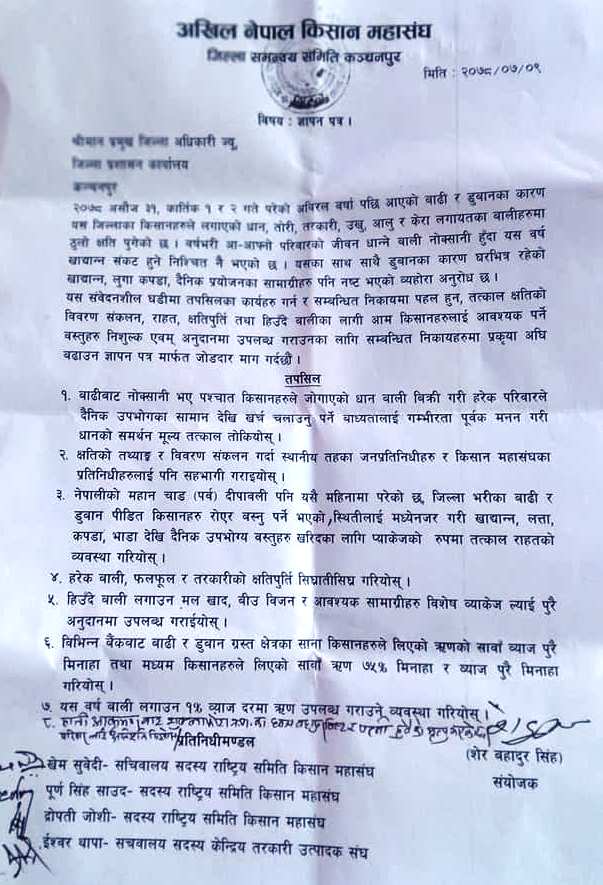 अखिल नेपाल किसान महासंघ
जिल्ला समन्वय समिति कञ्चनपुर
मिति : २०७८/०७/०९
विषय : ज्ञापन पत्र ।
श्रीमान प्रमुख जिल्ला अधिकारी ज्यू,
जिल्ला प्रशासन कार्यालय
कञ्चनपुर
२०७८ असोज ३१, कार्तिक १ र २ गते परेको अविरल बर्षा पछि आएको बाढी र डुवानका कारण
यस जिल्लाका किसानहरुले लगाएको धान, तोरी, तरकारी, उखु, आलु र केरा लगायतका बालीहरुमा
ठुलो क्षति पुगेको छ । वर्षभरी आ-आफ्नो परिवारको जीवन धान्ने बाली नोक्सानी हुँदा यस वर्ष
खाद्यान्न संकट हुने निश्चित नै भएको छ । यसका साथ साथै डुवानका कारण घरभित्र रहेको
खाद्यान्न, लुगा कपडा, दैनिक प्रयोजनका सामाग्रीहरु पनि नष्ट भएको व्यहोरा अनुरोध छ ।
यस संवेदनशील घडीमा तपसिलका कार्यहरु गर्न र सम्बन्धित निकायमा पहल हुन, तत्काल क्षतिको
विवरण संकलन, राहत, क्षतिपुर्ति तथा हिउँदे बालीका लागी आम किसानहरुलाई आवश्यक पर्ने
वस्तुहरु निशुल्क एवम् अनुदानमा उपलब्ध गराउनका लागि सम्बन्धित निकायहरुमा प्रकृया अघि
बढाउन ज्ञापन पत्र मार्फत जोडदार माग गर्दछौं ।
तपसिल
१. बाढीबाट नोक्सानी भए पश्चात किसानहरुले जोगाएको धान बाली बिक्री गरी हरेक परिवारले
दैनिक उपभोगका सामान देखि खर्च चलाउनु पर्ने बाध्यतालाई गम्भीरता पूर्वक मनन गरी
धानको समर्थन मूल्य तत्काल तोकियोस् ।
२. क्षतिको तथ्याङ्क र विवरण संकलन गर्दा स्थानीय तहका जनप्रतिनिधीहरु र किसान महासंघका
प्रतिनिधीहरुलाई पनि सहभागी गराइयोस् ।
३. नेपालीको महान चाड (पर्व) दीपावली पनि यसै महिनामा परेको छ, जिल्ला भरीका बाढी र
डुवान पीडित किसानहरु रोएर वस्नु पर्ने भएको,स्थितीलाई मध्येनजर गरी खाद्यान्न, लत्ता,
कपडा, भाडा देखि दैनिक उपभोग्य वस्तुहरु खरिदका लागि प्याकेजको रुपमा तत्काल राहतको
व्यवस्था गरियोस् ।
४. हरेक बाली, फलफूल र तरकारीको क्षतिपुर्ति सिघ्रातीसिघ्र गरियोस् ।
५. हिउँदे बाली लगाउन मल खाद, बीउ विजन र आवश्यक सामाग्रीहरु विशेष प्याकेज ल्याई पुरै
अनुदानमा उपलब्ध गराईयोस् ।
६. विभिन्न बैंकबाट बाढी र डुवान ग्रस्त क्षेत्रका साना किसानहरुले लिएको ऋणको सावाँ व्याज पुरै
मिनाहा तथा मध्यम किसानहरुले लिएको सावाँ ऋण ७५% मिनाहा र व्याज पुरै मिनाहा
गरियोस् ।
७. यस वर्ष बाली लगाउन १% व्याज दरमा ऋण उपलब्ध गराउने व्यवस्था गरियोस् ।
८.
प्रतिनिधीमण्डल
(शेर बहादुर सिंह)
संयोजक
खेम सुवेदी- सचिवालय सदस्य राष्ट्रिय समिति किसान महासंघ
पूर्ण सिंह साउद- सदस्य राष्ट्रिय समिति किसान महासंघ
द्रोपती जोशी- सदस्य राष्ट्रिय समिति किसान महासंघ
ईश्वर थापा- सचवालय सदस्य केन्द्रिय तरकारी उत्पादक संघ